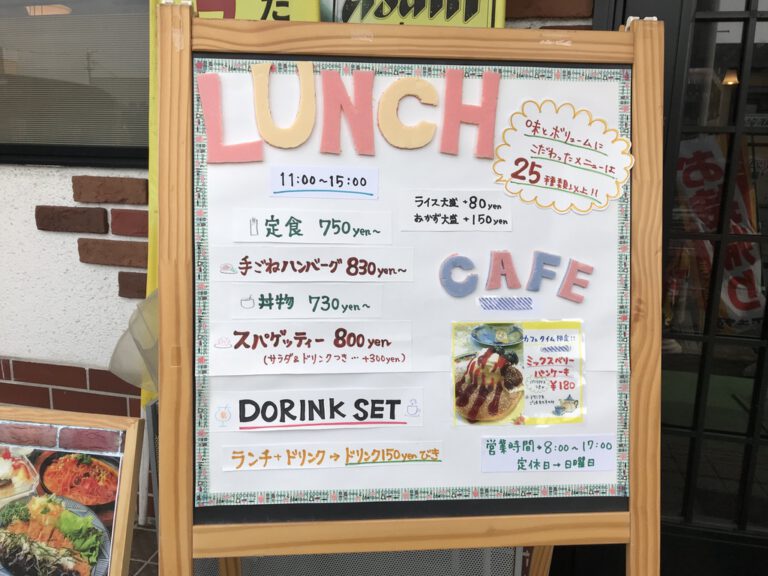 た
Asahi
LUNCH
味とボリュームに
こだわったメニューは
25種類以上!!
11:00～15:00
ライス大盛 +80yen
おかず大盛 +150yen
定食 750yen～
手ごねハンバーグ 830yen～
丼物 730yen～
スパゲッティー 800yen
(サラダ&ドリンクつき … +300yen)
DORINK SET
ランチ+ドリンク→ドリンク150yenびき
CAFE
カフェタイム限定!!
ミックスベリー
パンケーキ
¥180
営業時間→8:00～17:00
定休日→日曜日